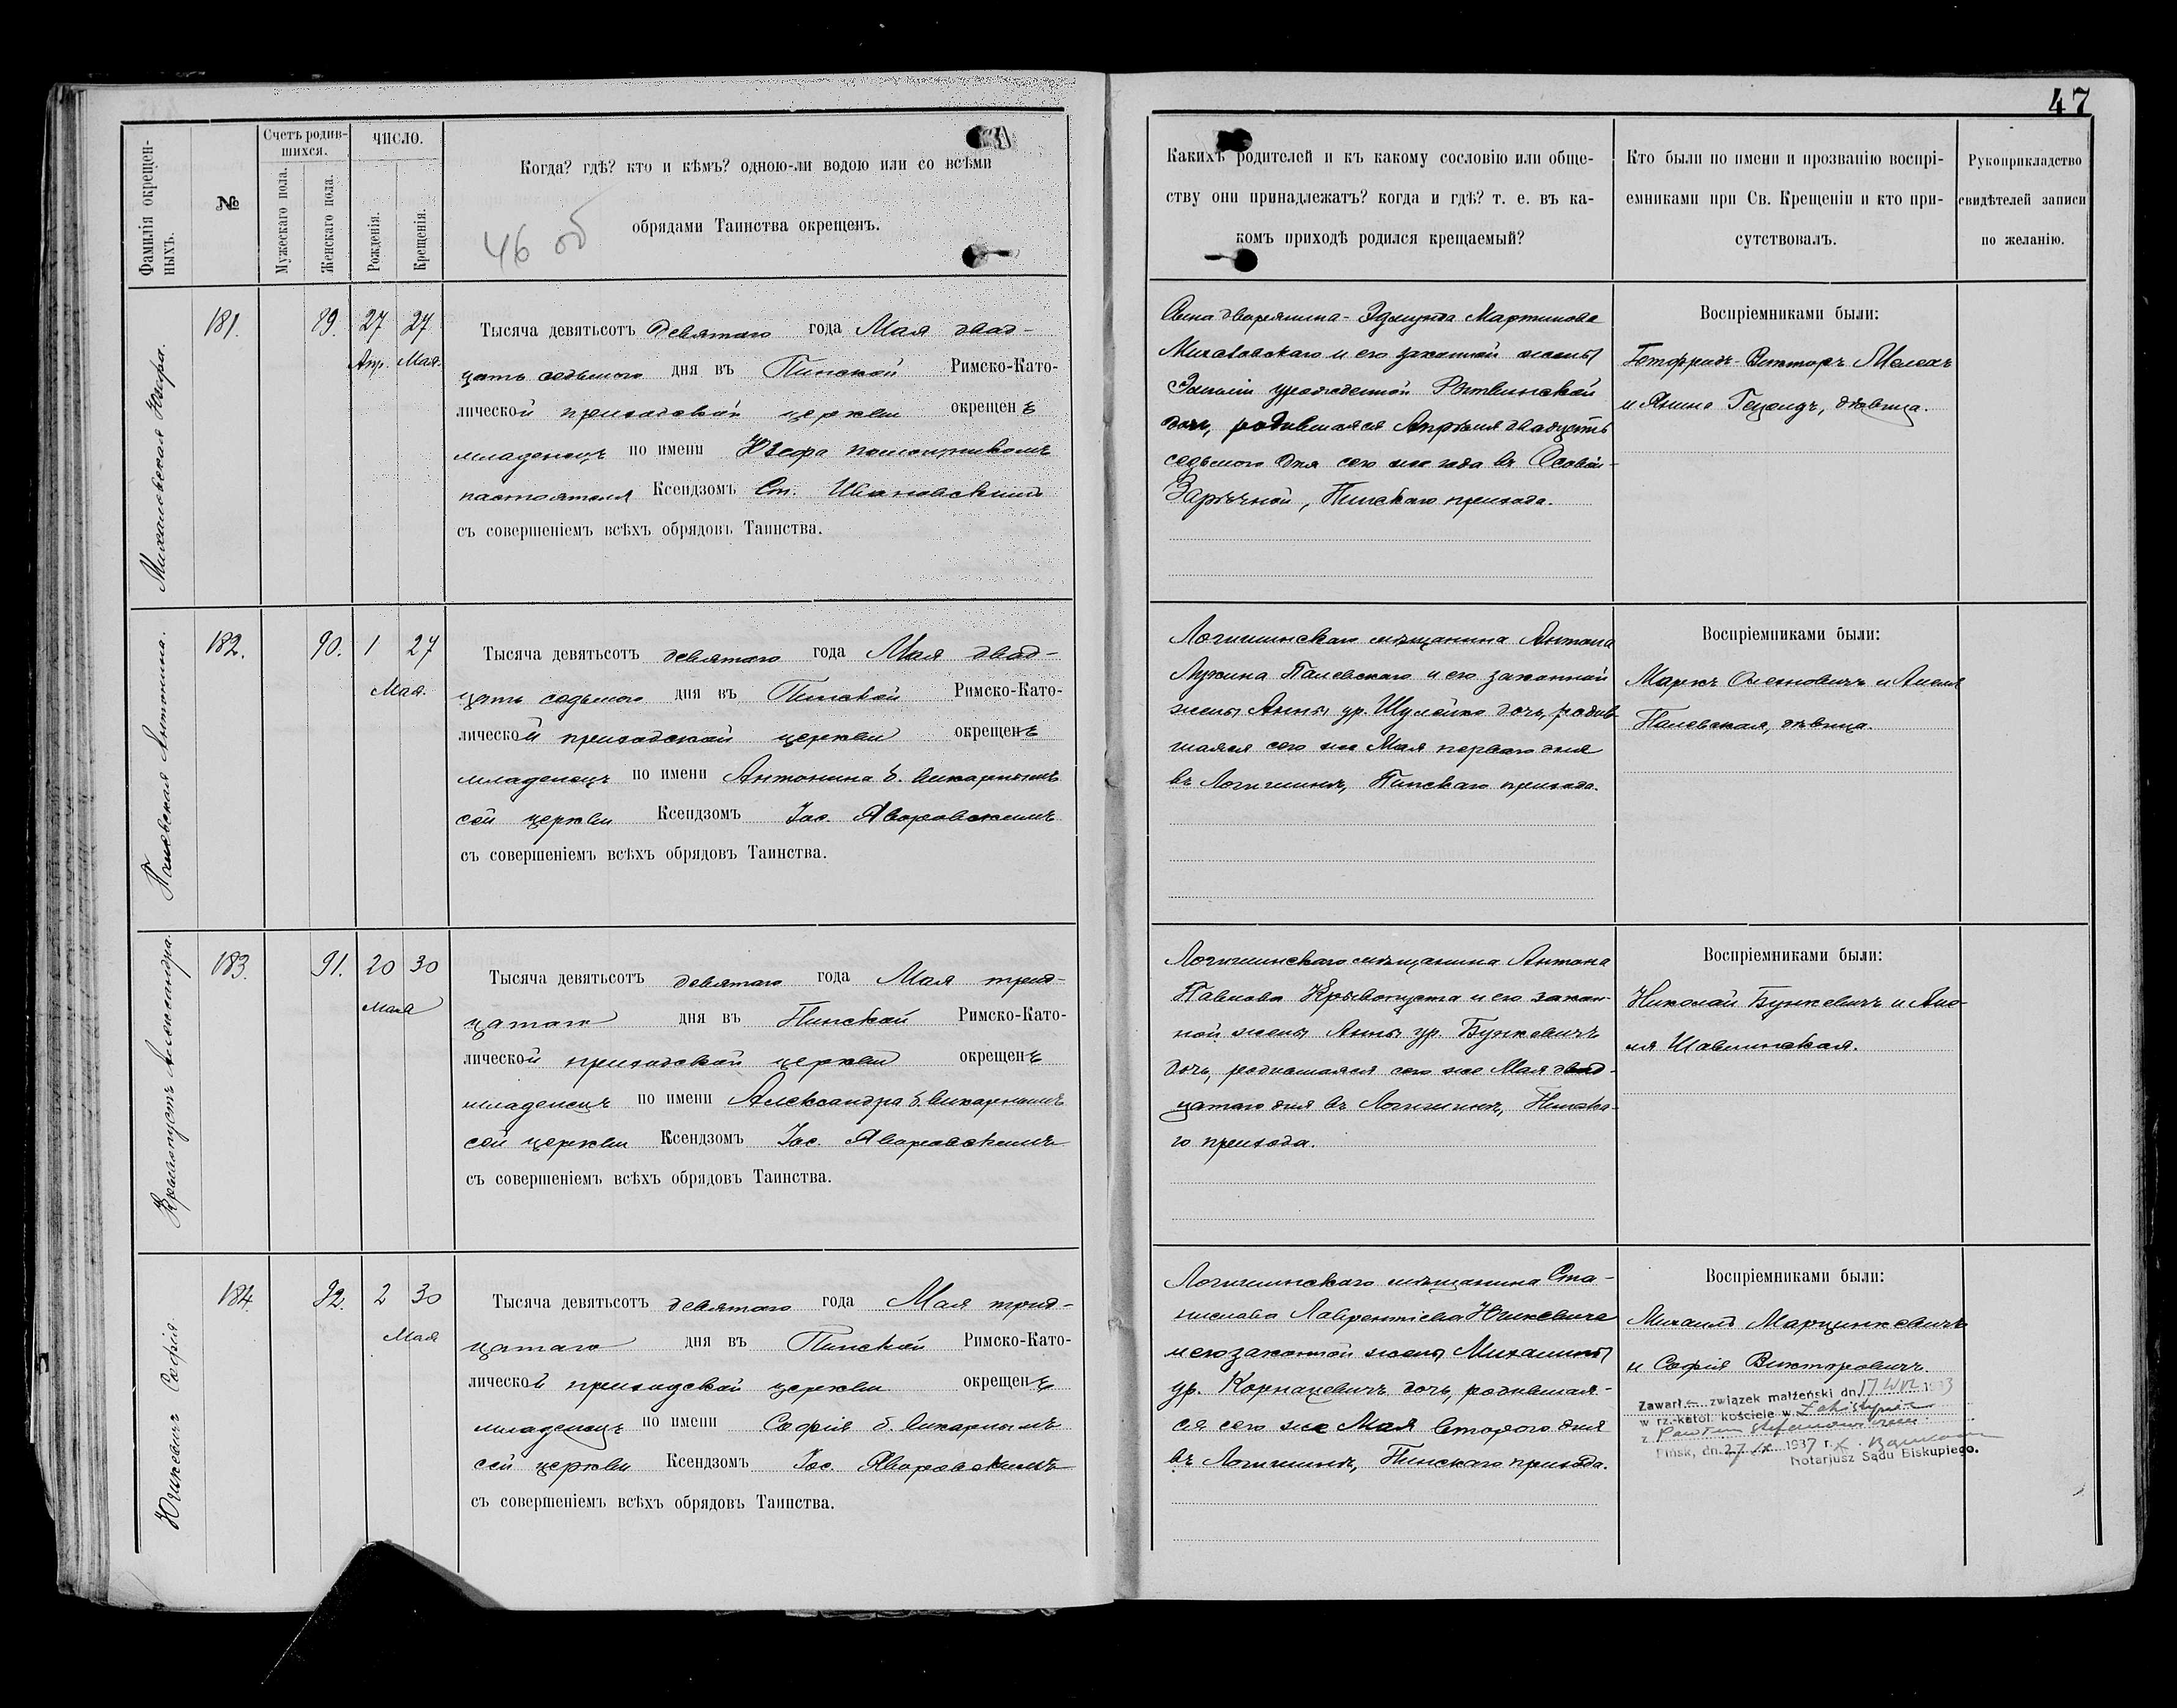 47
Фамилія окрещен-
ныхъ.
№
Счетъ родив-
шихся.
Мужескаго пола.
Женскаго пола.
ЧИСЛО.
Рожденія.
Крещенія.
Когда? гдѣ? кто и кѣмъ? одною-ли водою или со всѣми
обрядами Таинства окрещенъ.
46 об
Какихъ родителей и къ какому сословію или обще-
ству они принадлежатъ? когда и гдѣ? т. е. въ ка-
комъ приходѣ родился крещаемый?
Кто были по имени и прозванію воспрі-
емниками при Св. Крещеніи и кто при-
сутствовалъ.
Рукоприкладство
свидѣтелей записи
по желанію.
Михаловская Юзефа.
181.
89.
27 27
Апр. Мая.
Тысяча девятьсотъ девятаго года Мая двад-
цать седьмого дня въ Пинской Римско-Като-
лической приходской церкви окрещенъ
младенецъ по имени Юзефа помощникомъ
настоятеля Ксендзомъ Ст. Ивановскимъ
съ совершеніемъ всѣхъ обрядовъ Таинства.
дворянина - Мартинова
Михаловскаго и его законной жены
урожденной
дочь, родившаяся Апрѣля двадцать
седьмого дня сего же года въ
Зарѣчной, Пинскаго прихода.
Воспріемниками были:
Готфридъ-Викторъ
и Янина дѣвица.
Палевская Антонина.
182.
90.
1 27
Мая.
Тысяча девятьсотъ девятаго года Мая двад-
цать седьмого дня въ Пинской Римско-Като-
лической приходской церкви окрещенъ
младенецъ по имени Антонина б. викарнымъ
сей церкви Ксендзомъ Іос. Яворовскимъ
съ совершеніемъ всѣхъ обрядовъ Таинства.
Логишинскаго мѣщанина Антона
Палевскаго и его законной
жены Анны ур. Шулейко дочь, родив
шаяся сего же Мая перваго дня
въ Логишинѣ, Пинскаго прихода.
Воспріемниками были:
Маркъ и
Палевская, дѣвица.
Крывопустъ Александра.
183.
91.
20 30
Мая
Тысяча девятьсотъ девятаго года Мая трид-
цатаго дня въ Пинской Римско-Като-
лической приходской церкви окрещенъ
младенецъ по имени Александра б. викарнымъ
сей церкви Ксендзомъ Іос. Яворовскимъ
съ совершеніемъ всѣхъ обрядовъ Таинства.
Логишинскаго мѣщанина Антона
Павлова Крывопуста и его закон-
ной жены Анны ур. Бункевичъ
дочь, родившаяся сего же Мая двад-
цатаго дня въ Логишинѣ, Пинска-
го прихода.
Воспріемниками были:
Николай Бункевичъ и
Шавлинская.
Юшкевичъ Софія.
184.
92.
2 30
Мая
Тысяча девятьсотъ девятаго года Мая трид-
цатаго дня въ Пинской Римско-Като-
лической приходской церкви окрещенъ
младенецъ по имени Софія б. викарнымъ
сей церкви Ксендзомъ Іос. Яворовскимъ
съ совершеніемъ всѣхъ обрядовъ Таинства.
Логишинскаго мѣщанина Ста-
нислава Лаврентіева Юшкевича
и его законной жены Михалины
ур. Корнацевичъ дочь, родившая-
ся сего же Мая второго дня
въ Логишинѣ, Пинскаго прихода.
Воспріемниками были:
Михаилъ Марцинкевичъ
и Софія Викторовичъ.
Zawarł związek małżeński dn. 17
w rz.-katol. kościele w
z
Pińsk, dn. 27 IX 1937 r.
Notarjusz Sądu Biskupiego.